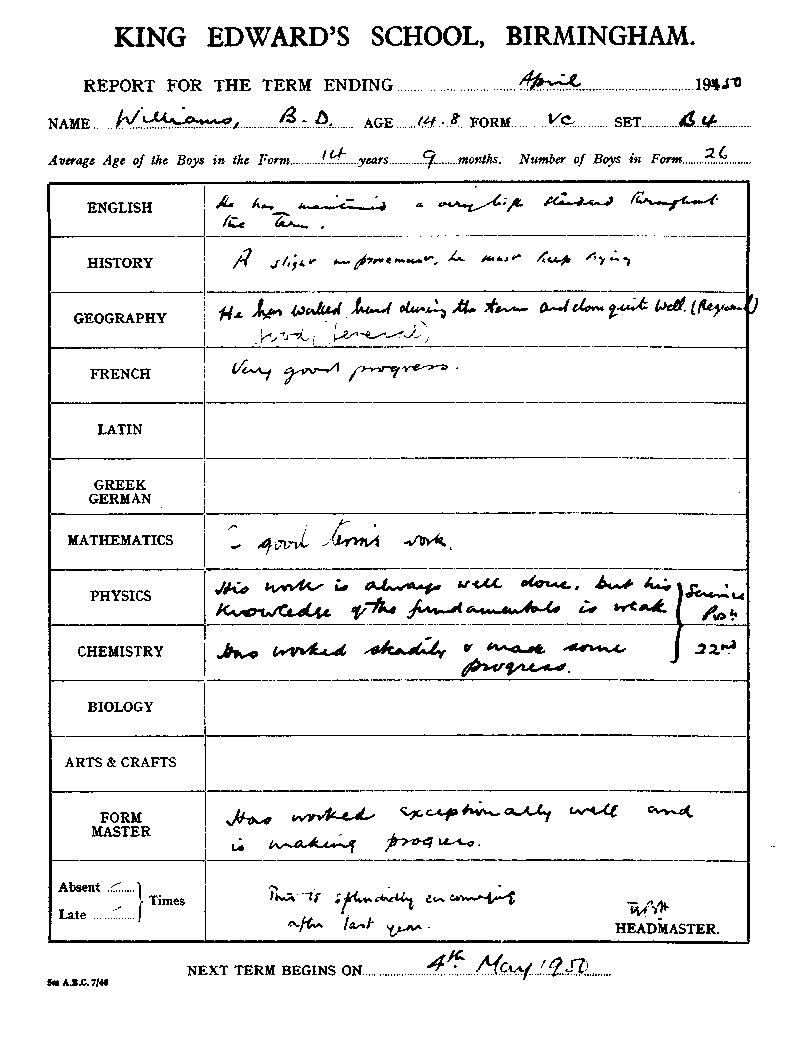 KING EDWARD'S SCHOOL, BIRMINGHAM.
REPORT FOR THE TERM ENDING April 1950
NAME Williams, B.D. AGE 14.8 FORM Vc SET B4
Average Age of the Boys in the Form 14 years 9 months. Number of Boys in Form 26
ENGLISH He has maintained a very high standard throughout
the Term.
HISTORY A slight improvement, he must keep trying
GEOGRAPHY He has worked hard during the term and done quite well. (Regional)
Good, (General)
FRENCH Very good progress.
LATIN
GREEK
GERMAN
MATHEMATICS A good term's work.
PHYSICS His work is always well done, but his
knowledge of the fundamentals is weak
Science
Posn
CHEMISTRY Has worked steadily & made some
progress.
22nd
BIOLOGY
ARTS & CRAFTS
FORM
MASTER
Has worked exceptionally well and
is making progress.
Absent Times
Late
This is splendidly encouraging
after last year.
HEADMASTER.
NEXT TERM BEGINS ON 4th May 1950
A.B.C. 7/46